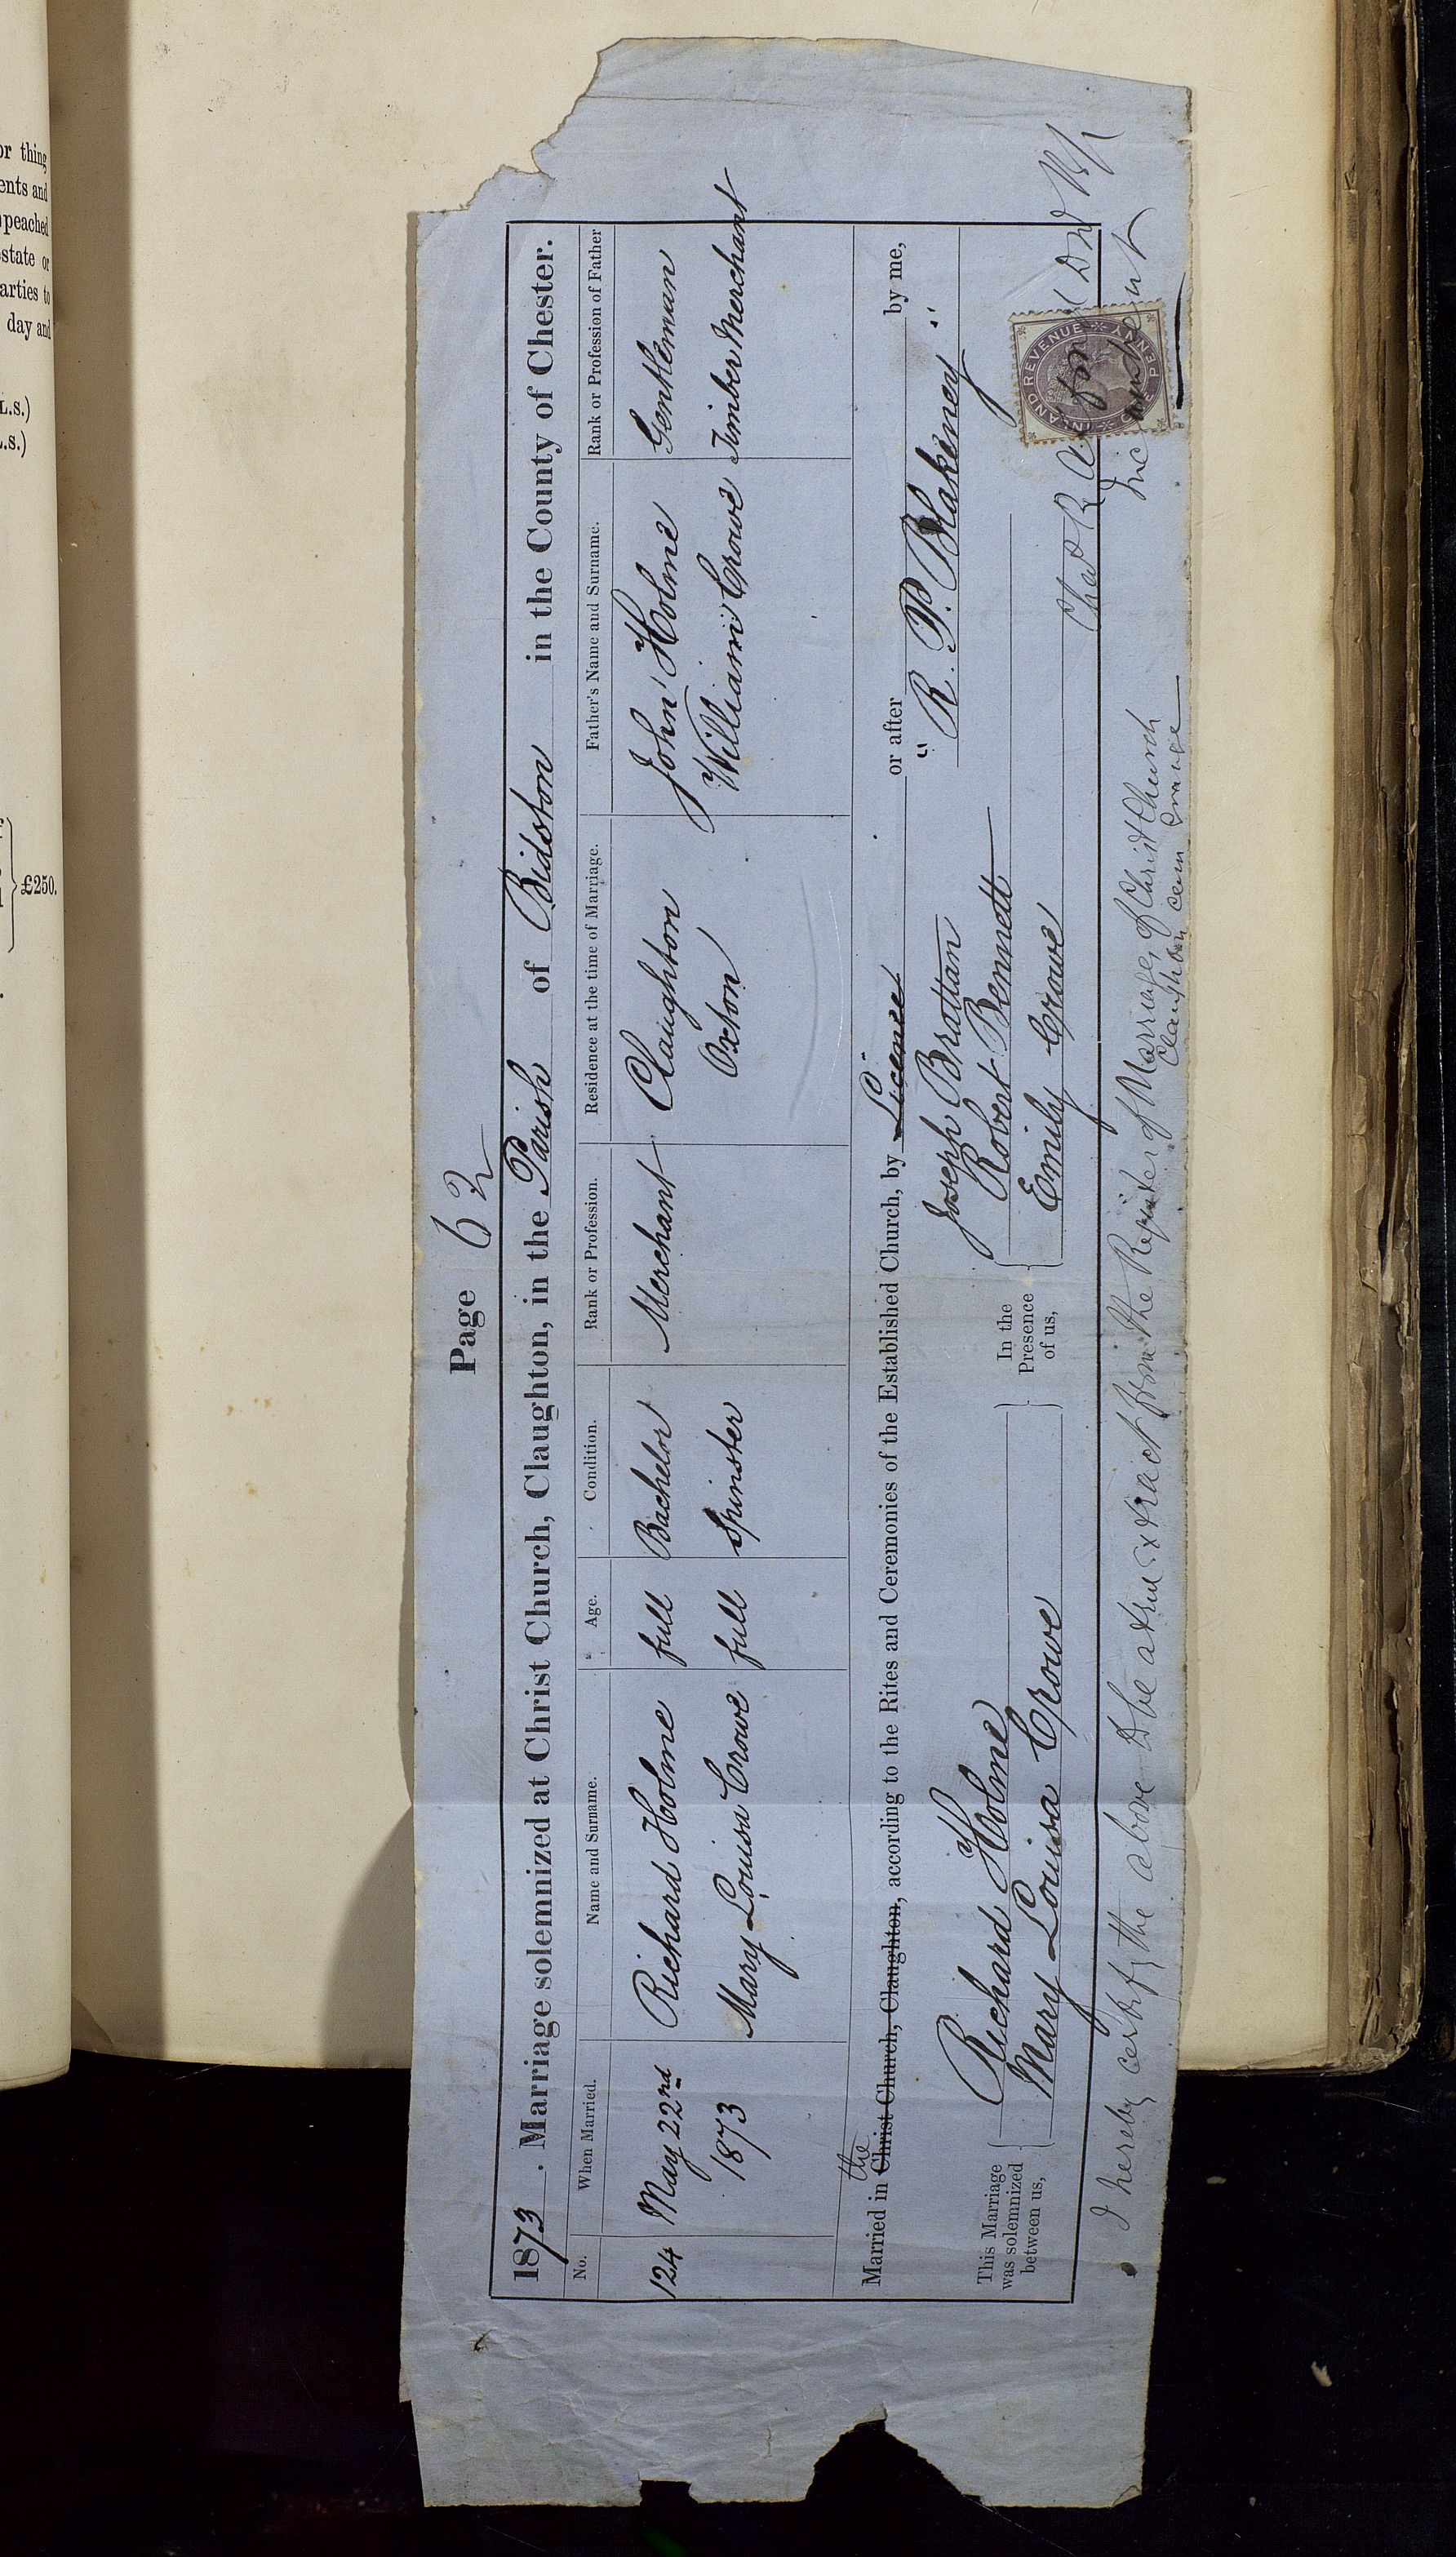 or thing
ents and
peached
state or
arties to
day and
L.S.)
L.S.)
£250.
Page 62
1873. Marriage solemnized at Christ Church, Claughton, in the Parish of Bidston in the County of Chester.
No. When Married. Name and Surname. Age. Condition. Rank or Profession. Residence at the time of Marriage. Father's Name and Surname. Rank or Profession of Father
124 May 22nd Richard Holme full Bachelor Merchant Claughton John Holme Gentleman
1873 Mary Louisa Crowe full Spinster Oxton William Crowe Timber Merchant
the
Married in Christ Church, Claughton, according to the Rites and Ceremonies of the Established Church, by Licence or after by me,
This Marriage was solemnized between us, Richard Holme In the Presence of us, Joseph Brattan " R. P. Blakeney "
Robert Bennett
Mary Louisa Crowe Emily Crowe
INLAND REVENUE ONE PENNY
Chas R
I hereby certify the above to be a true extract from the Register of Marriages of Christ Church
Claughton cum Grange
Incumbent